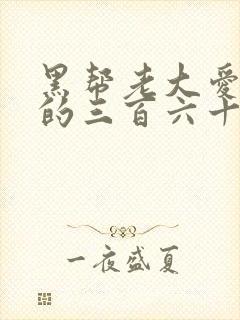 黑帮老大爱
的三百六十
一夜盛夏